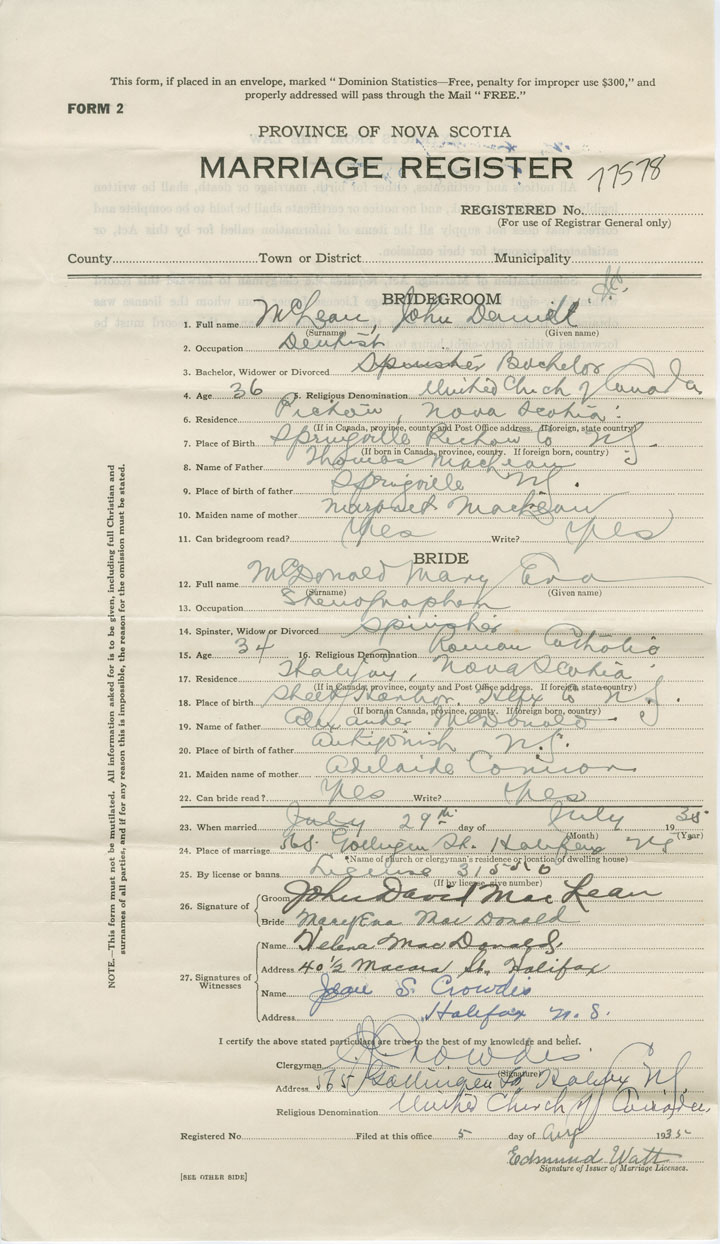 This form, if placed in an envelope, marked “ Dominion Statistics—Free, penalty for improper use $300,” and
properly addressed will pass through the Mail “ FREE.”
FORM 2
PROVINCE OF NOVA SCOTIA
MARRIAGE REGISTER 77578
REGISTERED No.
(For use of Registrar General only)
County Town or District Municipality
BRIDEGROOM
1. Full name McLean, John Daniel
(Surname) (Given name)
2. Occupation Dentist
3. Bachelor, Widower or Divorced Spinster Bachelor
4. Age 36 5. Religious Denomination United Church of Canada
6. Residence Pictou, Nova Scotia
(If in Canada, province, county and Post Office address. If foreign, state country)
7. Place of Birth Springville Pictou Co N.S.
(If born in Canada, province, county. If foreign born, country)
8. Name of Father Thomas MacLean
9. Place of birth of father Springville N.S.
10. Maiden name of mother Margaret MacLean
11. Can bridegroom read? Yes Write? Yes
BRIDE
12. Full name McDonald Mary Eva
(Surname) (Given name)
13. Occupation Stenographer
14. Spinster, Widow or Divorced Spinster
15. Age 34 16. Religious Denomination Roman Catholic
17. Residence Halifax, Nova Scotia
(If in Canada, province, county and Post Office address. If foreign, state country)
18. Place of birth Sheet Harbor, Hfx Co N.S.
(If born in Canada, province, county. If foreign born, country)
19. Name of father Alexander McDonald
20. Place of birth of father Antigonish N.S.
21. Maiden name of mother Adelaide Connors
22. Can bride read? Yes Write? Yes
23. When married July 29th day of July 1935
(Month) (Year)
24. Place of marriage 565 Gottingen St. Halifax N.S.
(Name of church or clergyman's residence or location of dwelling house)
25. By license or banns License 315550
(If by license, give number)
26. Signature of Groom John David MacLean
Bride Mary Eva MacDonald
27. Signatures of Witnesses
Name Helena MacDonald
Address 40½ Macara St. Halifax
Name Jean S. Crowdis
Address Halifax N.S.
I certify the above stated particulars are true to the best of my knowledge and belief.
Clergyman Crowdis
(Signature)
Address 565 Gottingen St Halifax N.S.
Religious Denomination United Church of Canada
Registered No. Filed at this office 5 day of Aug 1935
Edmund Watt
Signature of Issuer of Marriage Licenses.
[SEE OTHER SIDE]
NOTE.—This form must not be mutilated. All information asked for is to be given, including full Christian and
surnames of all parties, and if for any reason this is impossible, the reason for the omission must be stated.